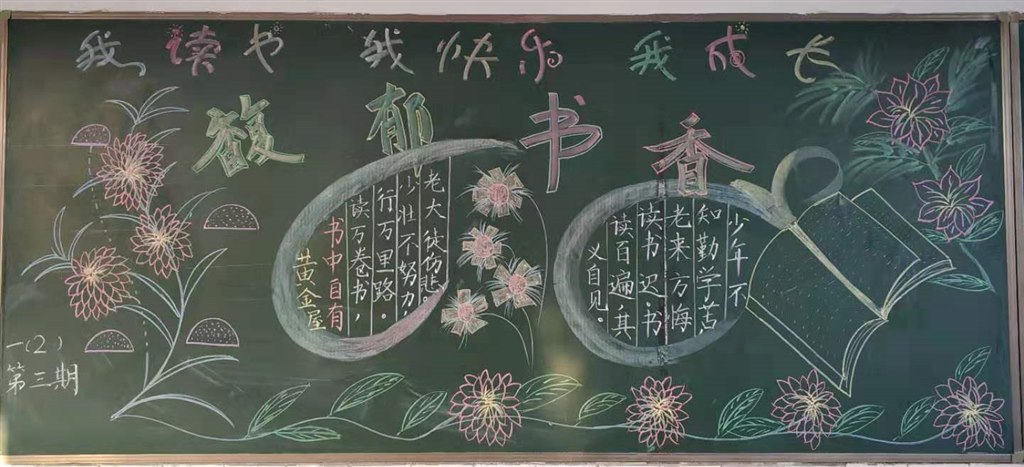 我读书 我快乐 我成长
馥郁书香
老大徒伤悲。
少壮不努力，
行万里路。
读万卷书，
书中自有
黄金屋
少年不
知勤学苦
老来方悔
读书迟书
读百遍其
义自见。
一(2)
第三期